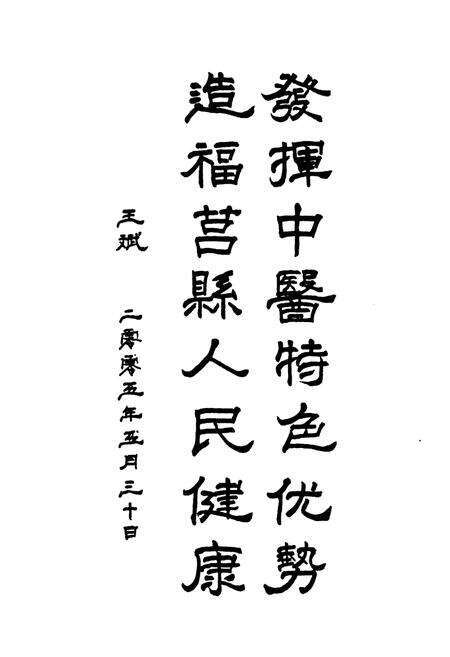 發揮中醫特色优勢
造福莒縣人民健康
王斌 二零零五年五月三十日